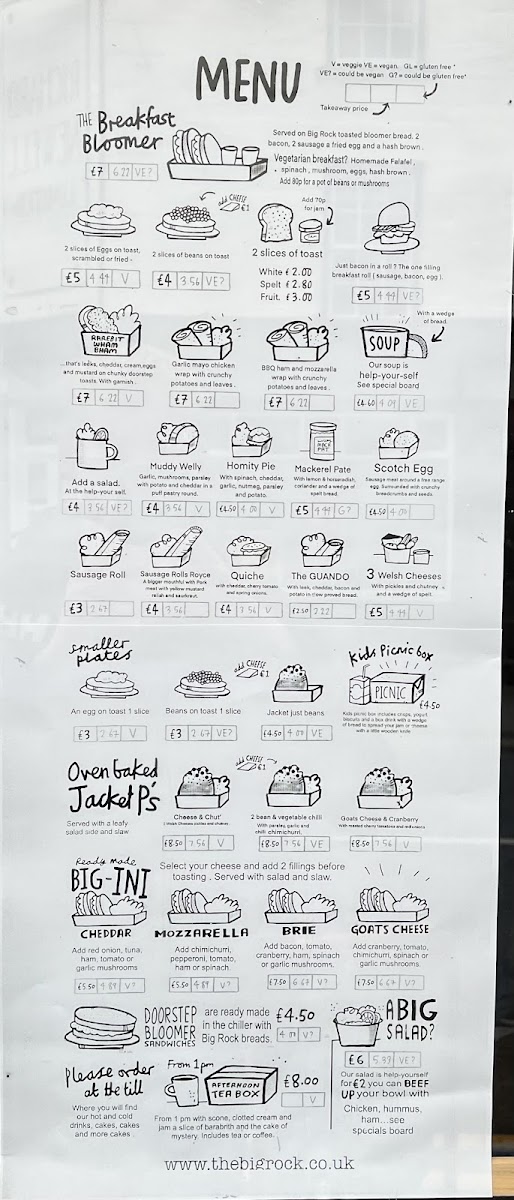 MENU
V = veggie VE = vegan. GL = gluten free *
VE? = could be vegan G? = could be gluten free*
Takeaway price
THE Breakfast
Bloomer
£7 6.22 VE?
Served on Big Rock toasted bloomer bread. 2
bacon, 2 sausage a fried egg and a hash brown.
Vegetarian breakfast? Homemade Falafel,
spinach, mushroom, eggs, hash brown.
Add 80p for a pot of beans or mushrooms
2 slices of Eggs on toast,
scrambled or fried -
£5 4.44 V
add CHEESE
£1
2 slices of beans on toast
£4 3.56 VE?
Add 70p
for jam
2 slices of toast
White £2.00
Spelt £2.80
Fruit. £3.00
Just bacon in a roll? The one filling
breakfast roll ( sausage, bacon, egg ).
£5 4.44 VE?
RAREBIT
WHAM
BHAM
...that's leeks, cheddar, cream, eggs
and mustard on chunky doorstep
toasts. With garnish.
£7 6.22 V
Garlic mayo chicken
wrap with crunchy
potatoes and leaves.
£7 6.22
BBQ ham and mozzarella
wrap with crunchy
potatoes and leaves.
£7 6.22
With a wedge
of bread.
SOUP
Our soup is
help-yourself
See special board
£4.60 4.09 VE
Add a salad.
At the help-your self.
£4 3.56 VE?
Muddy Welly
Garlic, mushrooms, parsley
with potato and cheddar in a
puff pastry round.
£4 3.56 V
Homity Pie
With spinach, cheddar,
garlic, nutmeg, parsley
and potato.
£4.50 4.00 V
MACK
PAT
Mackerel Pate
With lemon & horseradish,
coriander and a wedge of
spelt bread.
£5 4.44 G?
Scotch Egg
Sausage meat around a free range
egg. Surrounded with crunchy
breadcrumbs and seeds.
£4.50 4.00
Sausage Roll
£3 2.67
Sausage Rolls Royce
A bigger mouthful with Pork
meat with yellow mustard
relish and saurkraut.
£4 3.56
Quiche
with cheddar, cherry tomato
and spring onions.
£4 3.56 V
The GUANDO
With leek, cheddar, bacon and
potato in slow proved bread.
£2.50 2.22
3 Welsh Cheeses
With pickles and chutney
and a wedge of spelt.
£5 4.44 V
smaller
plates
An egg on toast 1 slice
£3 2.67 V
add CHEESE
£1
Beans on toast 1 slice
£3 2.67 VE?
Jacket just beans
£4.50 4.00 VE
Kids Picnic box
PICNIC
£4.50
Kids picnic box includes crisps, yogurt
biscuits and a box drink with a wedge
of bread to spread your jam or cheese
with a little wooden knife.
Oven baked
Jacket P's
Served with a leafy
salad side and slaw
Cheese & Chut'
£8.50 7.56 V
add CHEESE
£1
2 bean & vegetable chilli
With parsley, garlic and
chilli chimichurri.
£8.50 7.56 VE?
Goats Cheese & Cranberry
With roasted cherry tomatoes and red onions
£8.50 7.56 V
Ready made
BIG-INI
Select your cheese and add 2 fillings before
toasting . Served with salad and slaw.
CHEDDAR
Add red onion, tuna,
ham, tomato or
garlic mushrooms
£5.50 4.89 V?
MOZZARELLA
Add chimichurri,
pepperoni, tomato,
ham or spinach.
£5.50 4.89 V?
BRIE
Add bacon, tomato,
cranberry, ham, spinach
or garlic mushrooms.
£7.50 6.67 V?
GOATS CHEESE
Add cranberry, tomato,
chimichurri, spinach or
garlic mushrooms.
£7.50 6.67 V?
DOORSTEP
BLOOMER
SANDWICHES
are ready made
in the chiller with
Big Rock breads.
£4.50
4.00 V?
A BIG
SALAD?
£6 5.33 VE?
Our salad is help-yourself
for £2 you can BEEF
UP your bowl with
Chicken, hummus,
ham...see
specials board
Please order
at the till
Where you will find
our hot and cold
drinks, cakes, cakes
and more cakes .
From 1pm
AFTERNOON
TEA BOX
£8.00
V
From 1 pm with scone, clotted cream and
jam a slice of barabrith and the cake of
mystery. Includes tea or coffee.
www.thebigrock.co.uk